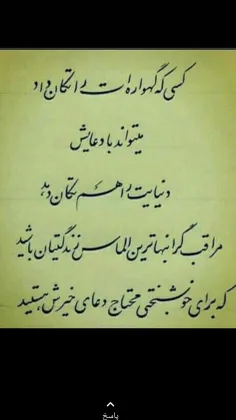 کسی که گهواره ات را تکان داد
میتواند با دعایش
دنیایت را هم تکان دهد
مراقب گرانبهاترین الماس زندگیتان باشید
که برای خوشبختی محتاج دعای خیرش هستید
پاسخ